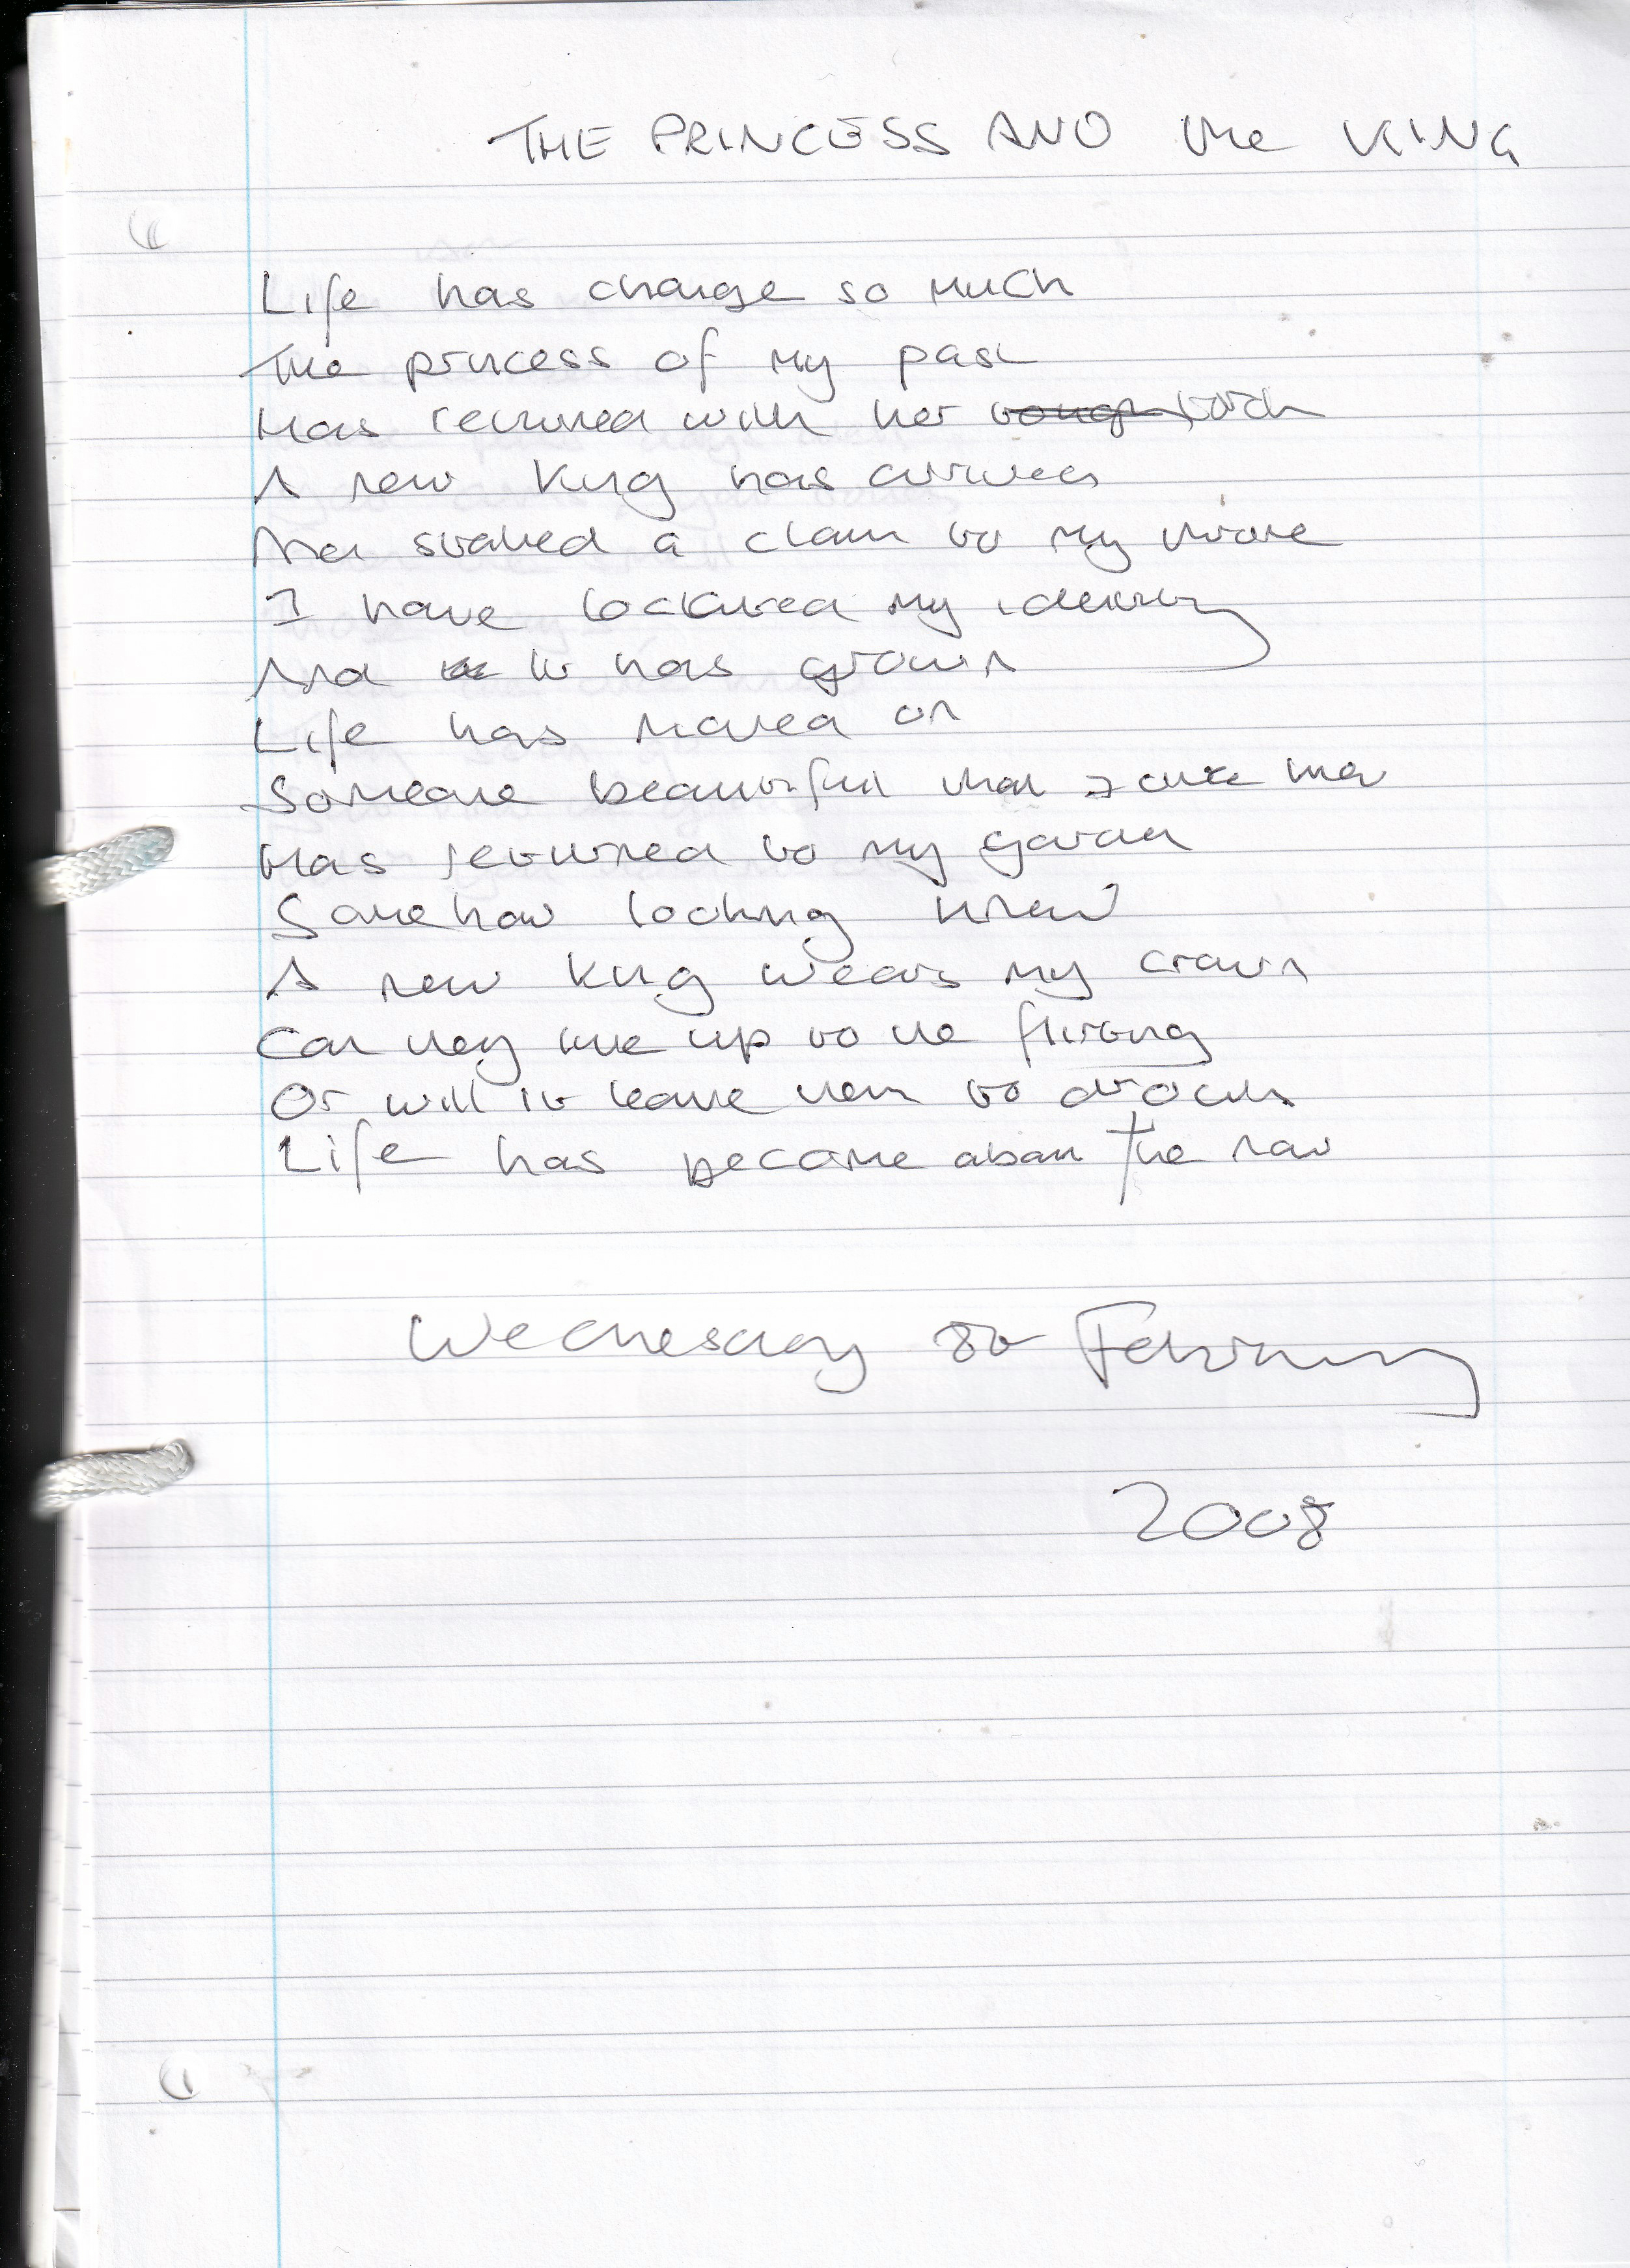 THE PRINCESS AND the KING
Life has change so much
The princess of my past
Has returned with her torch
A new King has arrived
And staked a claim to my throne
I have my identity
And it has grown
Life has moved on
Someone beautiful that I once knew
Has returned to my garden
Somehow looking
A new King wears my crown
Can they live up to the flirting
Or will it leave them to drown
Life has become about the now
Wednesday February
2008